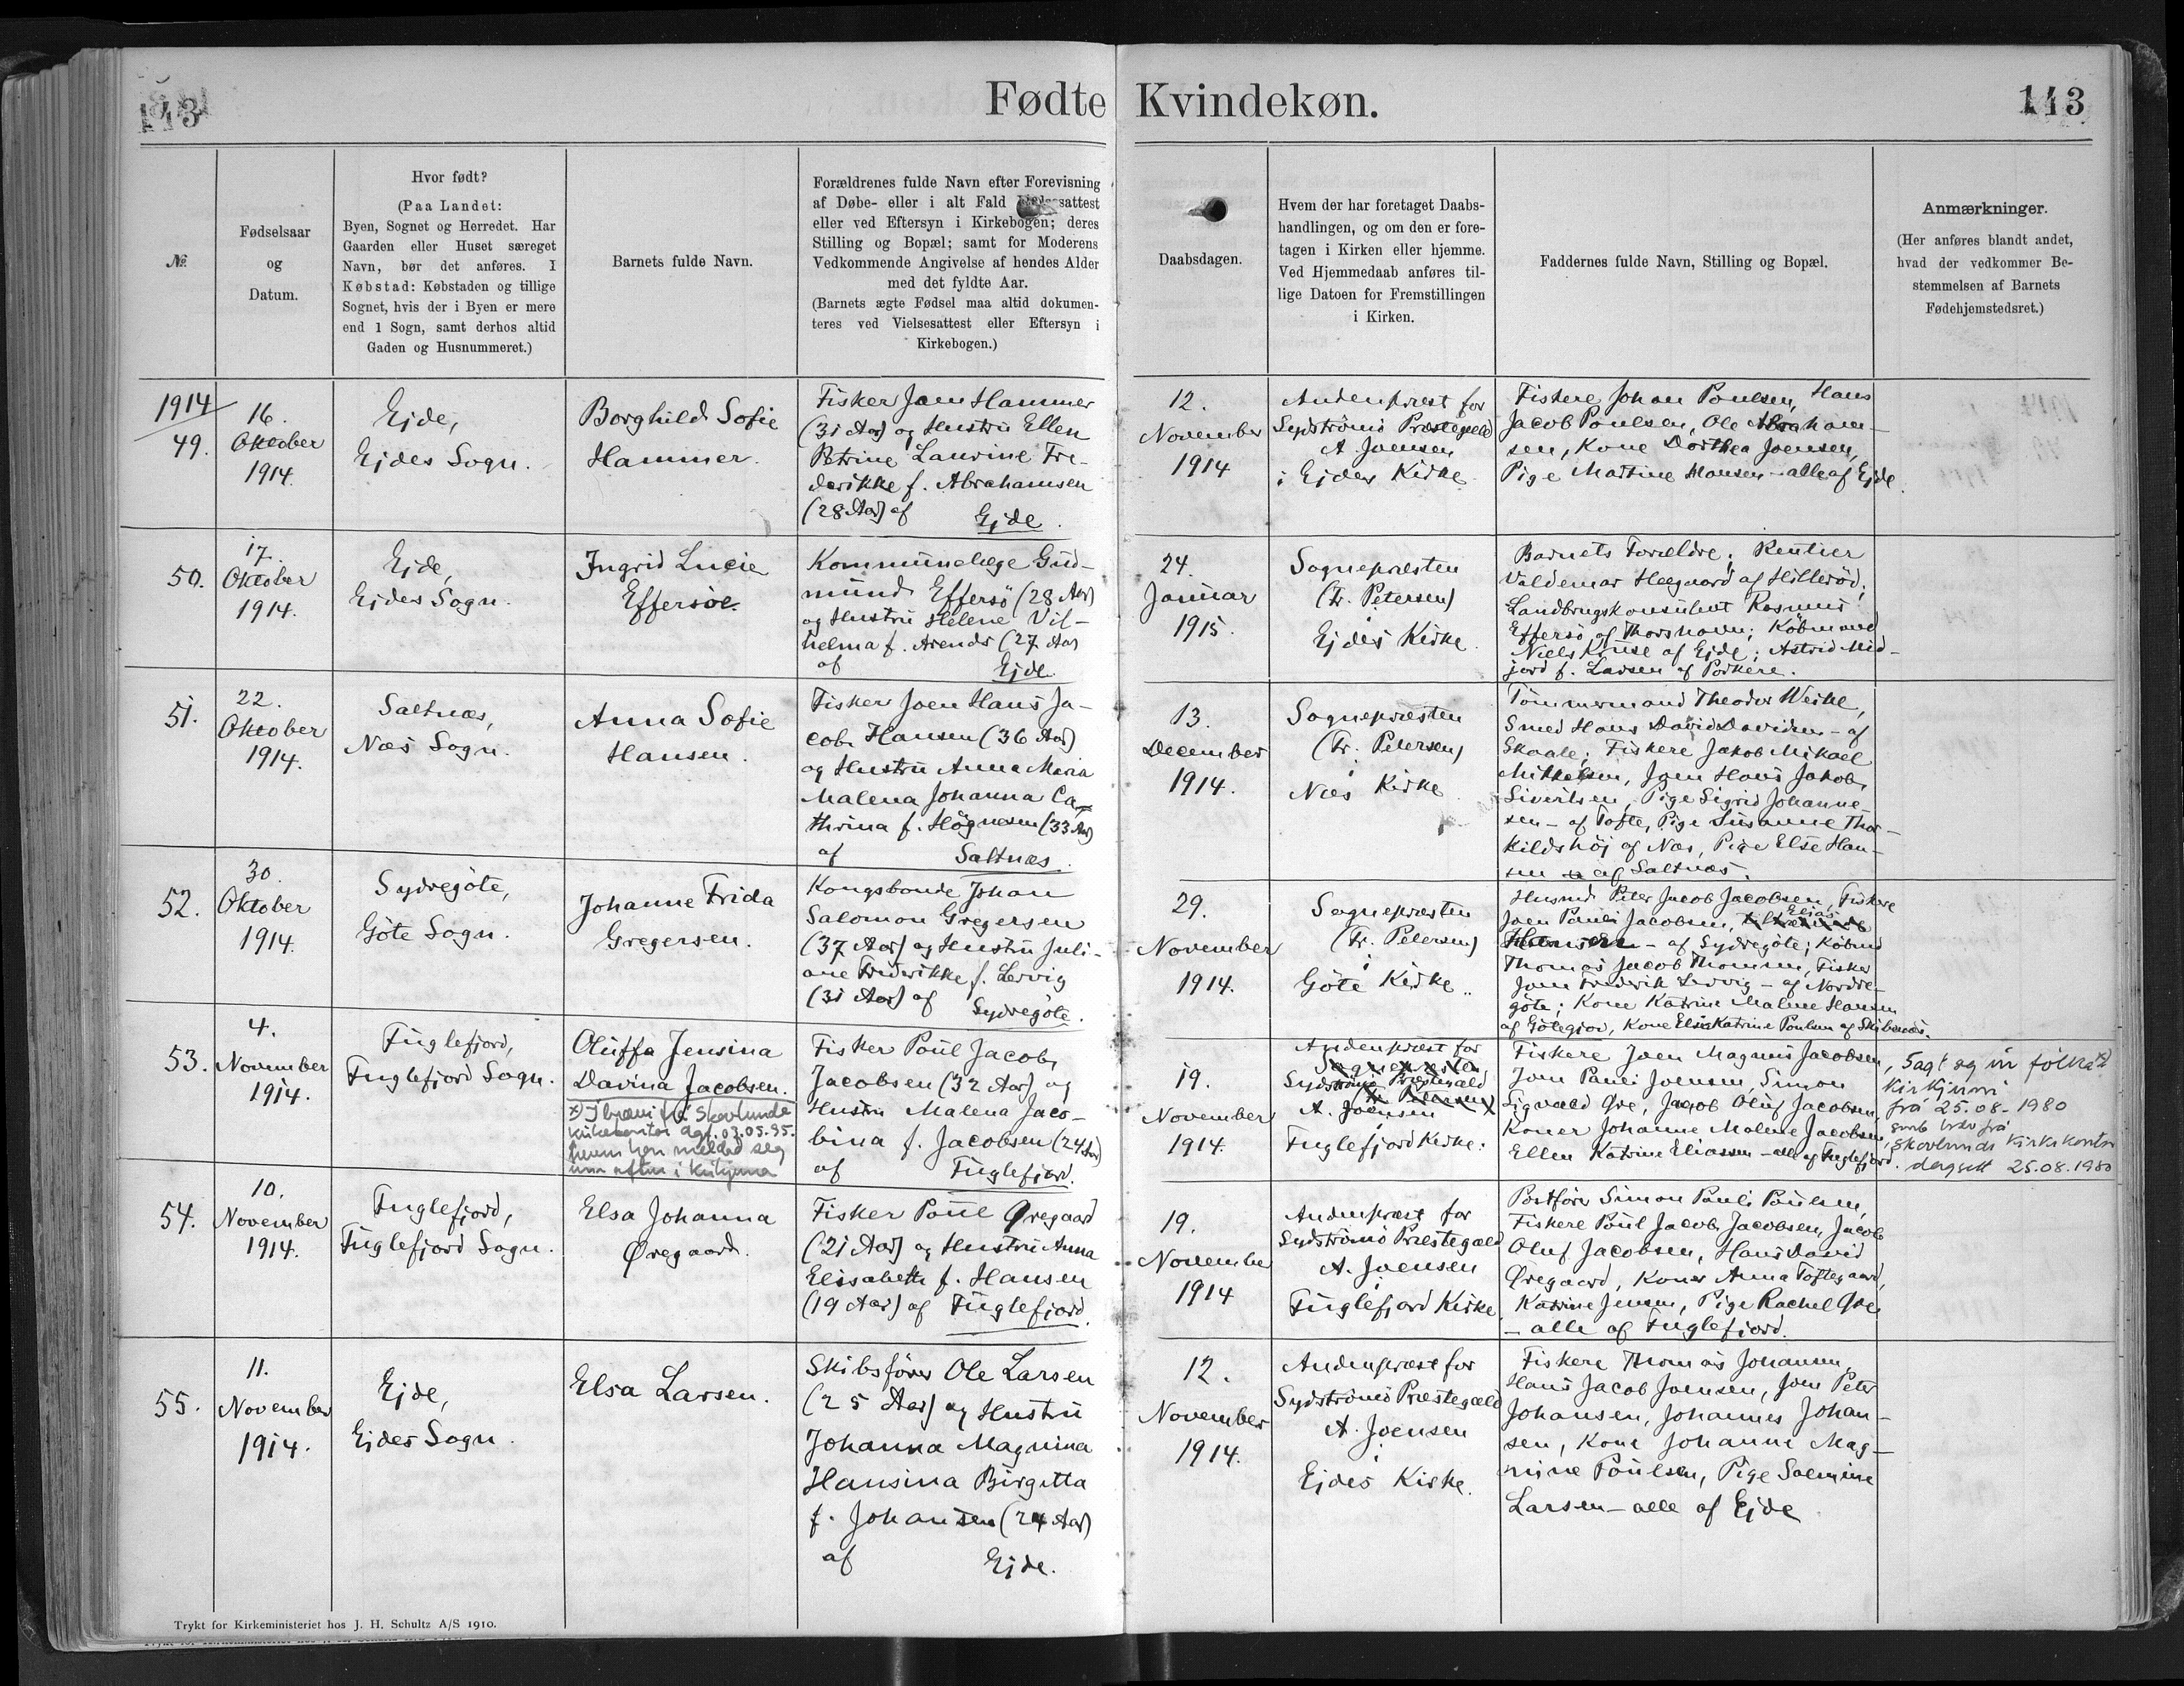 143
Fødte Kvindekøn.
143
№
Fødselsaar
og
Datum.
Hvor født?
(Paa Landet:
Byen, Sognet og Herredet. Har
Gaarden eller Huset særeget
Navn, bør det anføres. I
Købstad: Købstaden og tillige
Sognet, hvis der i Byen er mere
end 1 Sogn, samt derhos altid
Gaden og Husnummeret.)
Barnets fulde Navn.
Forældrenes fulde Navn efter Forevisning
af Døbe- eller i alt Fald Fødselsattest
eller ved Eftersyn i Kirkebogen; deres
Stilling og Bopæl; samt for Moderens
Vedkommende Angivelse af hendes Alder
med det fyldte Aar.
(Barnets ægte Fødsel maa altid dokumen-
teres ved Vielsesattest eller Eftersyn i
Kirkebogen.)
Daabsdagen.
Hvem der har foretaget Daabs-
handlingen, og om den er fore-
tagen i Kirken eller hjemme.
Ved Hjemmedaab anføres til-
lige Datoen for Fremstillingen
i Kirken.
Faddernes fulde Navn, Stilling og Bopæl.
Anmærkninger.
(Her anføres blandt andet,
hvad der vedkommer Be-
stemmelsen af Barnets
Fødehjemstedsret.)
1914
49.
16.
Oktober
1914.
Ejde,
Ejdes Sogn.
Borghild Sofie
Hammer.
Fisker Joen Hammer
(31 Aar) og Hustru Ellen
Petrine Laurine Fre-
derikke f. Abrahamsen
(28 Aar) af Ejde.
12.
November
1914
Andenpræst for
Sydströmö Præstegæld
A. Joensen
i Ejdes Kirke.
Fiskere Johan Poulsen, Hans
Jacob Poulsen, Ole Abraham-
sen, Kone Dorthea Joensen,
Pige Martine Hansen - alle af Ejde.
50.
17.
Oktober
1914.
Ejde,
Ejdes Sogn.
Ingrid Lucie
Effersöe.
Kommunelæge Gud-
mund Effersö (28 Aar)
og Hustru Helene Vil-
helma f. Arends (27 Aar)
af Ejde.
24.
Januar
1915.
Sognepræsten
(Fr. Petersen)
i
Ejdes Kirke.
Barnets Forældre; Rentier
Valdemar Heegaard af Hilleröd;
Landbrugskonsulent Rasmus
Effersö af Thorshavn; Købmand
Niels Kruse af Ejde; Astrid Mid-
jord f. Larsen af Porkere.
51.
22.
Oktober
1914.
Saltnæs,
Næs Sogn.
Anna Sofie
Hansen.
Fisker Joen Hans Ja-
cob Hansen (36 Aar)
og Hustru Anna Maria
Malena Johanna Ca-
thrina f. Högnesen (33 Aar)
af Saltnæs.
13.
December
1914.
Sognepræsten
(Fr. Petersen)
i
Næs Kirke.
Tömmermand Theodor Weihe,
Smed Hans David Davidsen - af
Skaale; Fiskere Jakob Mikael
Mikkelsen, Joen Hans Jakob
Sivertsen, Pige Sigrid Johanne-
sen - af Tofte, Pige Susanne Thor-
kildshöj af Næs, Pige Else Han-
sen af Saltnæs.
52.
30.
Oktober
1914.
Sydregöte,
Göte Sogn.
Johanne Frida
Gregersen.
Kongsbonde Johan
Salomon Gregersen
(37 Aar) og Hustru Juli-
ane Frederikke f. Lervig
(31 Aar) af Sydregöte.
29.
November
1914.
Sognepræsten
(Fr. Petersen)
i
Göte Kirke.
Husmd. Peter Jacob Jacobsen, Fiskere
Joen Pauli Jacobsen, Elias
Hansen - af Sydregöte; Købmd
Thomas Jacob Thomsen, Fisker
Joen Fredrik Lervig - af Nordre-
göte; Kone Katrine Malene Hansen
af Götegjov, Kone Elsa Katrine Poulsen af Skibenæs.
53.
4.
November
1914.
Fuglefjord,
Fuglefjord Sogn.
Oluffa Jensina
Davina Jacobsen.
x) Í brævi frá Skovlunde
Kirkekontor dagf. 03.05.95.
hevur hon meldað seg
inn aftur í kirkjuna
Fisker Poul Jacob
Jacobsen (32 Aar) og
Hustru Malena Jaco-
bina f. Jacobsen (24 Aar)
af Fuglefjord.
19.
November
1914.
Andenpræst for
Sognepræsten
Sydströmö Præstegæld
Fr. Petersen
A. Joensen
i
Fuglefjord Kirke.
Fiskere Joen Magnus Jacobsen,
Joen Pauli Joensen, Simon
Sigvald Øre, Jacob Oluf Jacobsen,
Koner Johanne Malene Jacobsen,
Ellen Katrine Eliassen - alle af Fuglefjord.
Sagt seg úr fólka- x)
kirkjuni
frá 25.08-1980
smb. bræv frá
Skovlunde Kirkekontor
dagsett 25.08.1980
54.
10.
November
1914.
Fuglefjord,
Fuglefjord Sogn.
Elsa Johanna
Øregaard.
Fisker Poul Øregaard
(21 Aar) og Hustru Anna
Elisabeth f. Hansen
(19 Aar) af Fuglefjord.
19.
November
1914
Andenpræst for
Sydströmö Præstegæld
A. Joensen
i
Fuglefjord Kirke.
Postförer Simon Pauli Poulsen,
Fiskere Poul Jacob Jacobsen, Jacob
Oluf Jacobsen, Hans David
Øregaard, Koner Anna Toftegaard,
Katrine Jensen, Pige Rachel Øre
- alle af Fuglefjord.
55.
11.
November
1914.
Ejde,
Ejdes Sogn.
Elsa Larsen.
Skibsförer Ole Larsen
(25 Aar) og Hustru
Johanna Magnina
Hansina Birgitta
f. Johansen (24 Aar)
af Ejde.
12.
November
1914.
Andenpræst for
Sydströmö Præstegæld
A. Joensen
i
Ejdes Kirke.
Fiskere Thomas Johansen,
Hans Jacob Joensen, Joen Peter
Johansen, Johannes Johan-
sen, Kone Johanne Mag-
nine Poulsen, Pige Salmine
Larsen - alle af Ejde
Trykt for Kirkeministeriet hos J. H. Schultz A/S 1910.